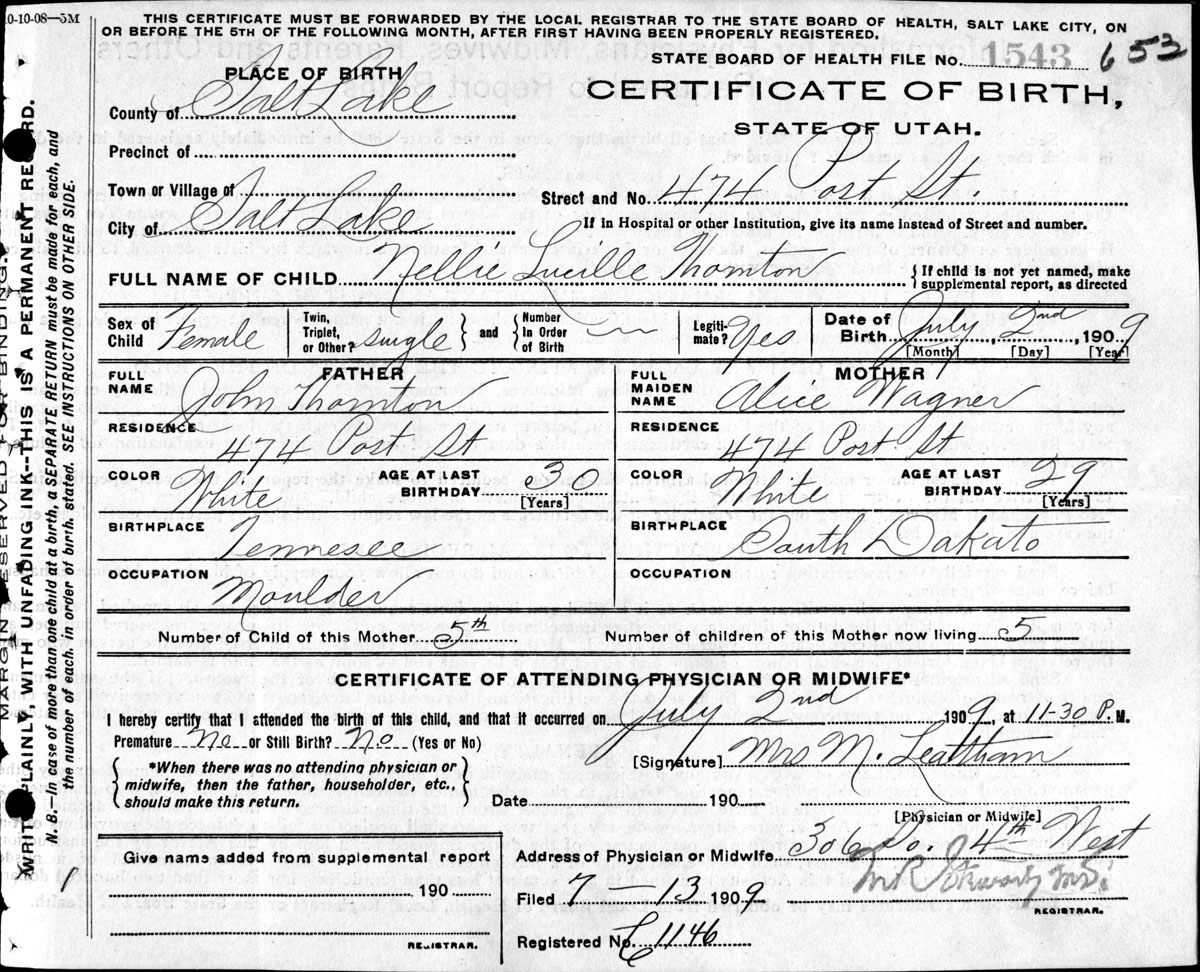 10-10-08—5M
THIS CERTIFICATE MUST BE FORWARDED BY THE LOCAL REGISTRAR TO THE STATE BOARD OF HEALTH, SALT LAKE CITY, ON
OR BEFORE THE 5TH OF THE FOLLOWING MONTH, AFTER FIRST HAVING BEEN PROPERLY REGISTERED.
STATE BOARD OF HEALTH FILE No. 1543 653
PLACE OF BIRTH
CERTIFICATE OF BIRTH,
STATE OF UTAH.
County of Salt Lake
Precinct of
Town or Village of
Street and No. 474 Post St.
City of Salt Lake
If in Hospital or other Institution, give its name instead of Street and number.
FULL NAME OF CHILD Nellie Lucille Thornton
{ If child is not yet named, make
supplemental report, as directed
Sex of Child Female
Twin, Triplet, or Other? single } and { Number in Order of Birth
Legitimate? Yes
Date of Birth July 2nd, 1909
[Month] [Day] [Year]
FATHER
MOTHER
FULL NAME John Thornton
FULL MAIDEN NAME Alice Wagner
RESIDENCE 474 Post St
RESIDENCE 474 Post St
COLOR White AGE AT LAST BIRTHDAY 30 [Years]
COLOR White AGE AT LAST BIRTHDAY 29 [Years]
BIRTHPLACE Tennesee
BIRTHPLACE South Dakato
OCCUPATION Moulder
OCCUPATION
Number of Child of this Mother 5th
Number of children of this Mother now living 5
CERTIFICATE OF ATTENDING PHYSICIAN OR MIDWIFE*
I hereby certify that I attended the birth of this child, and that it occurred on July 2nd 1909, at 11-30 P. M.
Premature No or Still Birth? No (Yes or No)
[Signature] Mrs M. Leatham
{ *When there was no attending physician or
midwife, then the father, householder, etc.,
should make this return. }
Date 190
[Physician or Midwife]
Give name added from supplemental report
190
REGISTRAR.
Address of Physician or Midwife 306 So. 4th West
Filed 7-13 1909
REGISTRAR.
Registered No. C 1146
MARGIN RESERVED FOR BINDING
WRITE PLAINLY, WITH UNFADING INK—THIS IS A PERMANENT RECORD.
N. B.—In case of more than one child at a birth, a SEPARATE RETURN must be made for each, and
the number of each, in order of birth, stated. SEE INSTRUCTIONS ON OTHER SIDE.